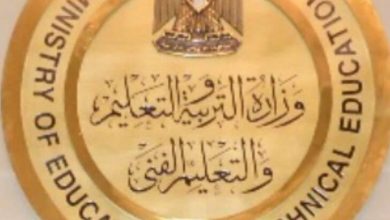 MINISTRY OF EDUCA
CHNICAL EDUCATION
وزارة التربية والتعليم
والتعليم الفنى